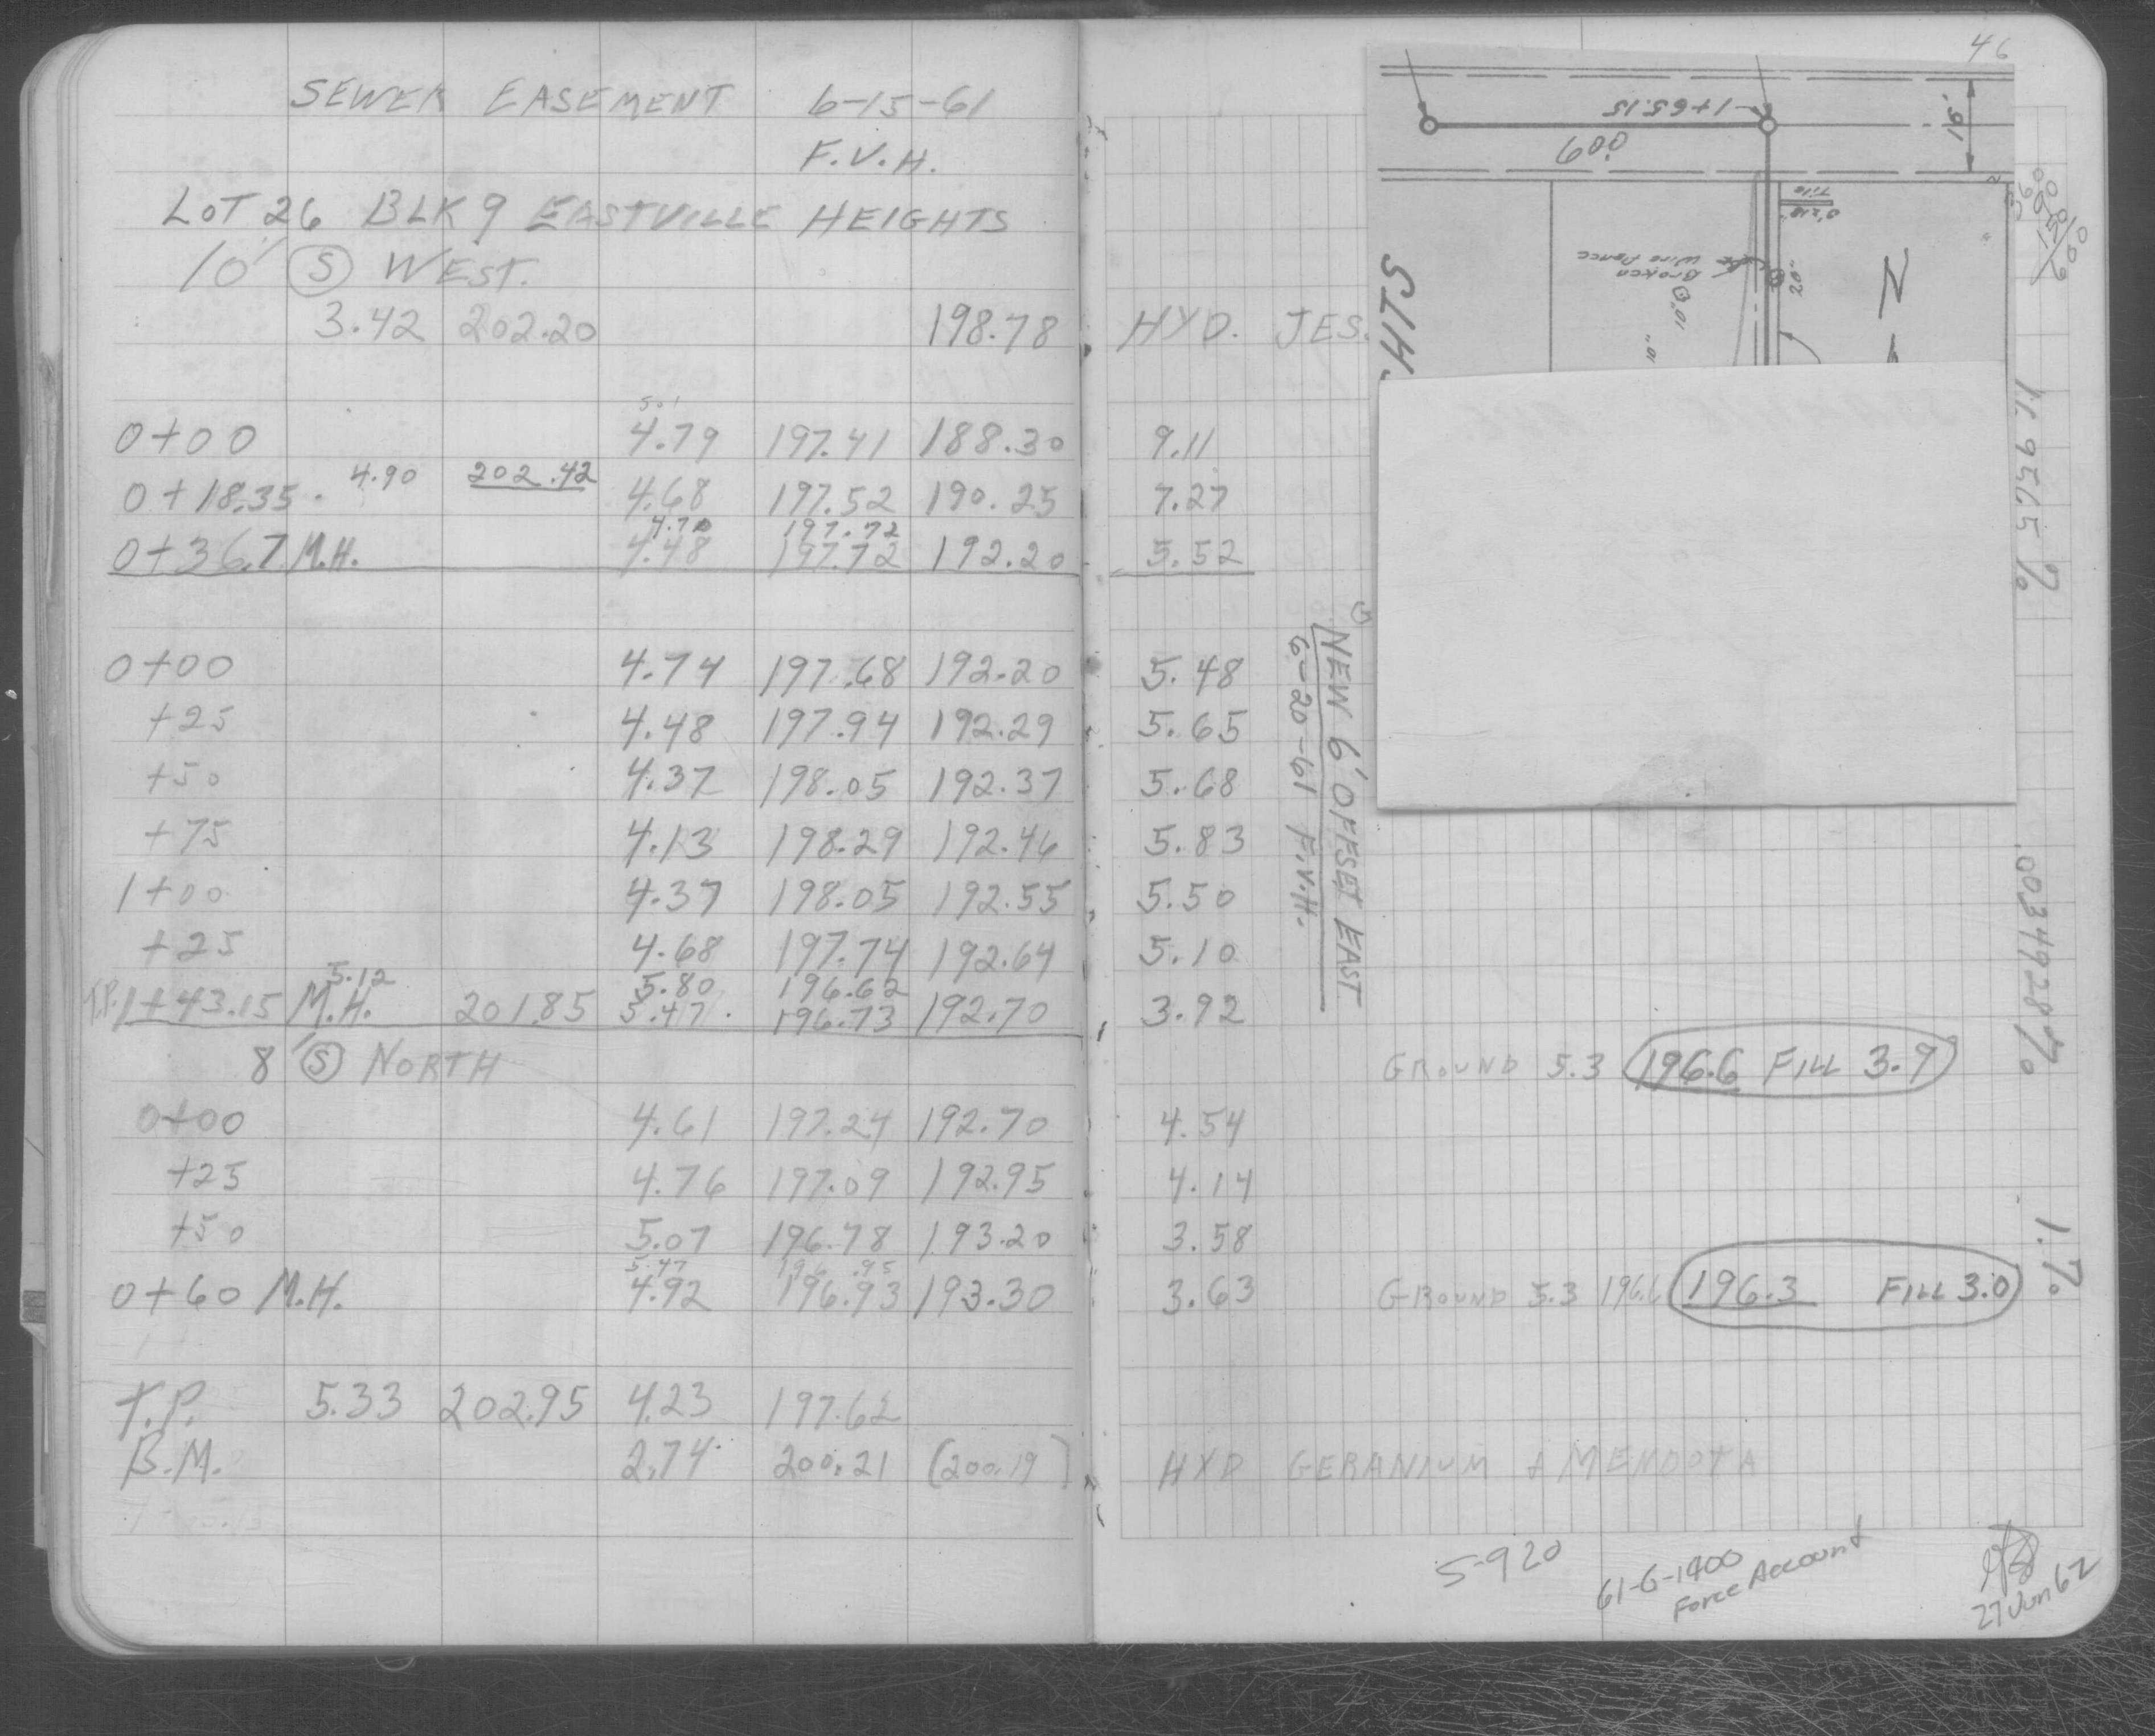 46
SEWER EASEMENT 6-15-61
F.V.H.
LOT 26 BLK 9 EASTVILLE HEIGHTS
10' S WEST.
3.42 202.20 198.78 HYD. JES.
5.01
0+00 4.79 197.41 188.30 9.11
4.90 202.42
0+18.35 4.68 197.52 190.25 7.27
4.70 197.72
0+36.7 M.H. 4.48 197.72 192.20 5.52
0+00 4.74 197.68 192.20 5.48
+25 4.48 197.94 192.29 5.65
+50 4.37 198.05 192.37 5.68
+75 4.13 198.29 192.46 5.83
1+00 4.37 198.05 192.55 5.50
+25 4.68 197.74 192.64 5.10
5.12 5.80 196.62
T.P. 1+43.15 M.H. 201.85 5.47 196.73 192.70 3.92
8" S NORTH
GROUND 5.3 196.6 FILL 3.9
0+00 4.61 197.24 192.70 4.54
+25 4.76 197.09 192.95 4.14
+50 5.07 196.78 193.20 3.58
5.47 196.95
0+60 M.H. 4.92 196.93 193.30 3.63 GROUND 5.3 196.6 196.3 FILL 3.0
T.P. 5.33 202.95 4.23 197.62
B.M. 2.74 200.21 (200.19) HYD GERANIUM & MENDOTA
NEW 6' OFFSET EAST
6-20-61 F.V.H.
1+65.15
600
16'
Tile
Broken
Wire Fence
10'
20"
10"
N
S.L.H.
11.9565%
.0034928%
1.%
S-920
61-G-1400
Force Account
27 Jun 62